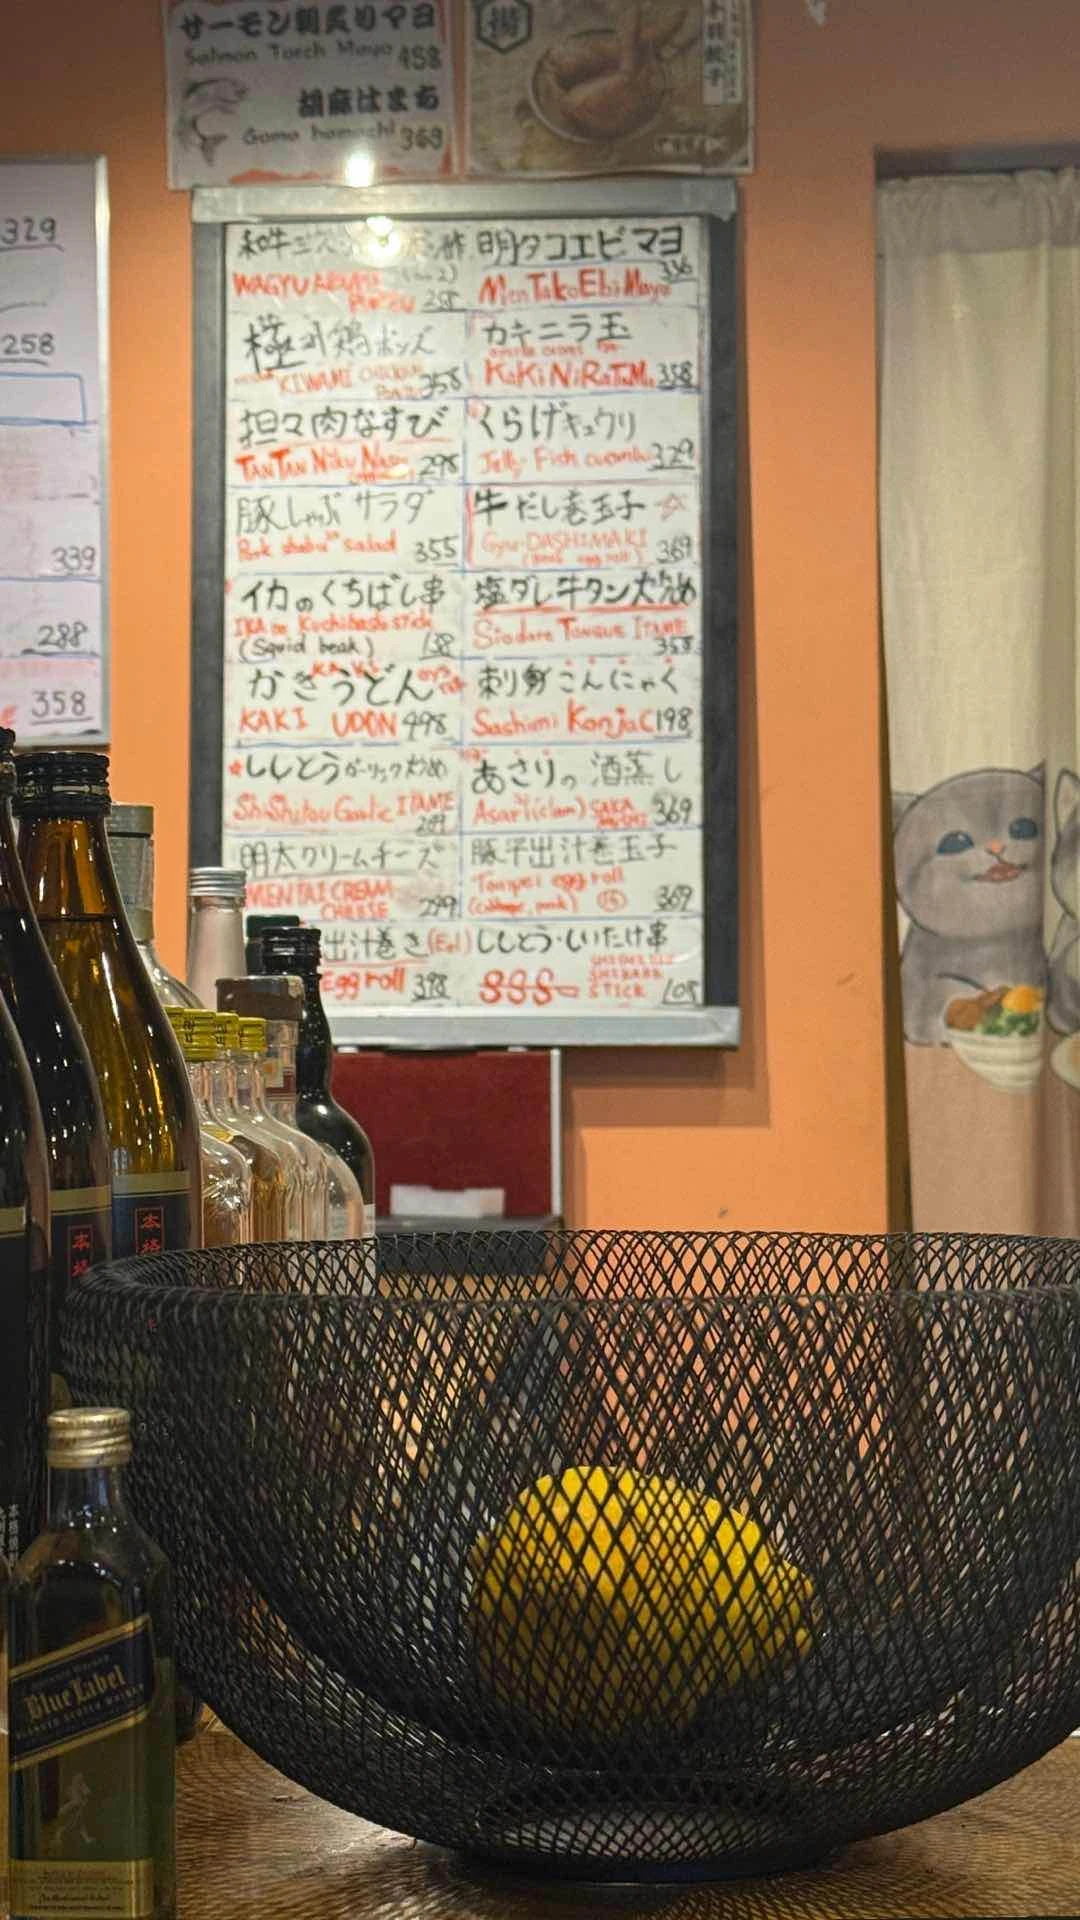 サーモン刺炙りマヨ
Salmon Torch Mayo 458
胡麻はまち
Goma hamachi 369
揚
329
258
339
288
358
和牛
WAGYU
明タコエビマヨ
MenTakoEbiMayo 336
極 鶏ポンズ
KIWAMI CHICKEN 358
カキニラ玉
KaKi NiRaTaMa 358
担々肉なすび
TANTAN Niku Nasu 298
くらげキュウリ
Jelly Fish cucumber 329
豚しゃぶサラダ
Pork shabu salad 355
牛だし巻玉子 ☆
Gyu-DASHIMAKI
egg roll) 369
イカのくちばし串
IKA no Kuchibashi stick
(Squid beak) 158
塩ダレ牛タン炒め
Siodare TONGUE ITAME
358
かきうどん
KAKI UDON 498
刺身こんにゃく
Sashimi Konjac 198
★ししとうガーリック炒め
ShiShitou Garlic ITAME
289
あさりの酒蒸し
Asari (clam) SAKA
MUSHI 369
明太クリームチーズ
MENTAI CREAM
CHEESE 299
豚平出汁巻玉子
Tonpei egg roll
(cabbage, pork) 369
出汁巻き (Eel)
Egg roll 398
ししとう・しいたけ串
SSS
SHISHITO
SHIITAKE
STICK 108
本格
本格
Blue Label
BLENDED SCOTCH WHISKY